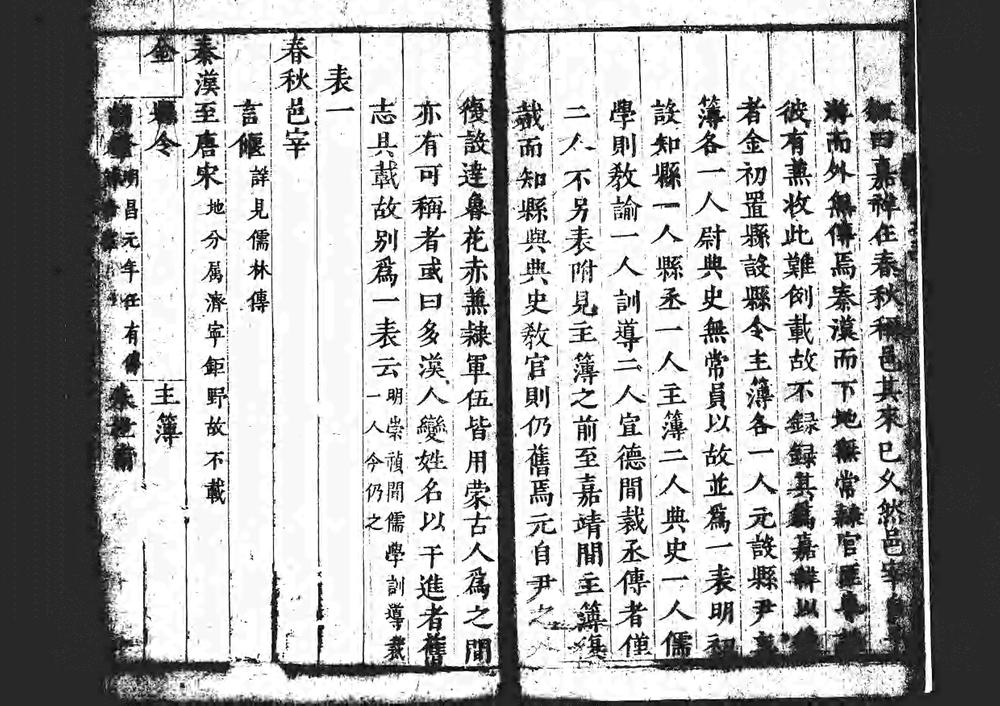 曰嘉祥在春秋稱邑其來已久然邑宰
而外無傳焉秦漢而下地無常隸官
彼有兼收此難例載故不録録其爲嘉祥以
者金初置縣設縣令主簿各一人元設縣尹主
簿各一人尉典史無常員以故並爲一表明初
設知縣一人縣丞一人主簿二人典史一人儒
學則教諭一人訓導二人宣德間裁丞傳者僅
二人不另表附見主簿之前至嘉靖間主簿復
裁而知縣與典史教官則仍舊焉元自尹之
復設達魯花赤兼隸軍伍皆用蒙古人爲之間
亦有可稱者或曰多漢人變姓名以干進者舊
志具載故別爲一表云明崇禎間儒學訓導裁
一人今仍之
表一
春秋邑宰
言偃詳見儒林傳
秦漢至唐宋地分属濟寧鉅野故不載
金 縣令 主簿
明昌元年任有傳